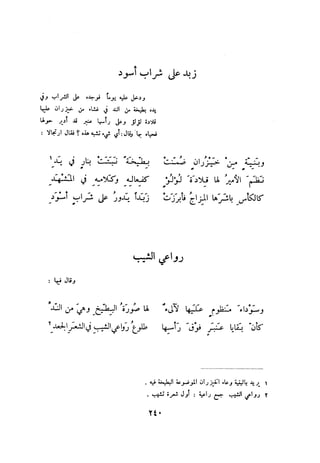 زبد على شراب أسود
ودخل عليه يوماً فوجده على الشراب وفي
يده بطيخة من الند في غشاء من خيزران عليها
قلادة لؤلؤ وعلى رأسها عنبر قد أدير حولها
فحياه بها وقال: أي شيء تشبه هذه؟ فقال ارتجالا :
وبَنِيّةٍ مِنْ خَيْزُرَانٍ ضُمّنَتْ بِطّيخَةً نَبَتَتْ بنارٍ في يَدِ ١
نَظَمَ الأميرُ لها قِلادَةَ لُؤلُؤٍ كفِعالِهِ وكَلامِهِ في المَشْهَدِ
كالكأسِ باشَرَها المِزاجُ فأبْرَزَتْ زَبَداً يَدورُ على شَرابٍ أسْوَدِ
رواعي الشيب
وقال فيها :
وسَوْداءَ مَنْظومٍ عَلَيها لآلىءٌ لها صُورَةُ البِطّيخِ وهيَ من النَّدّ
كأنّ بَقايا عَنْبَرٍ فَوْقَ رَأسِها طلوعُ رَواعي الشّيبِ في الشعَرِ الجَعدِ ٢
١ يريد بالبنية وعاء الخيزران الموضوعة البطيخة فيه .
٢ رواعي الشيب جمع راعية : أول شعرة تشيب .
٢٤٠